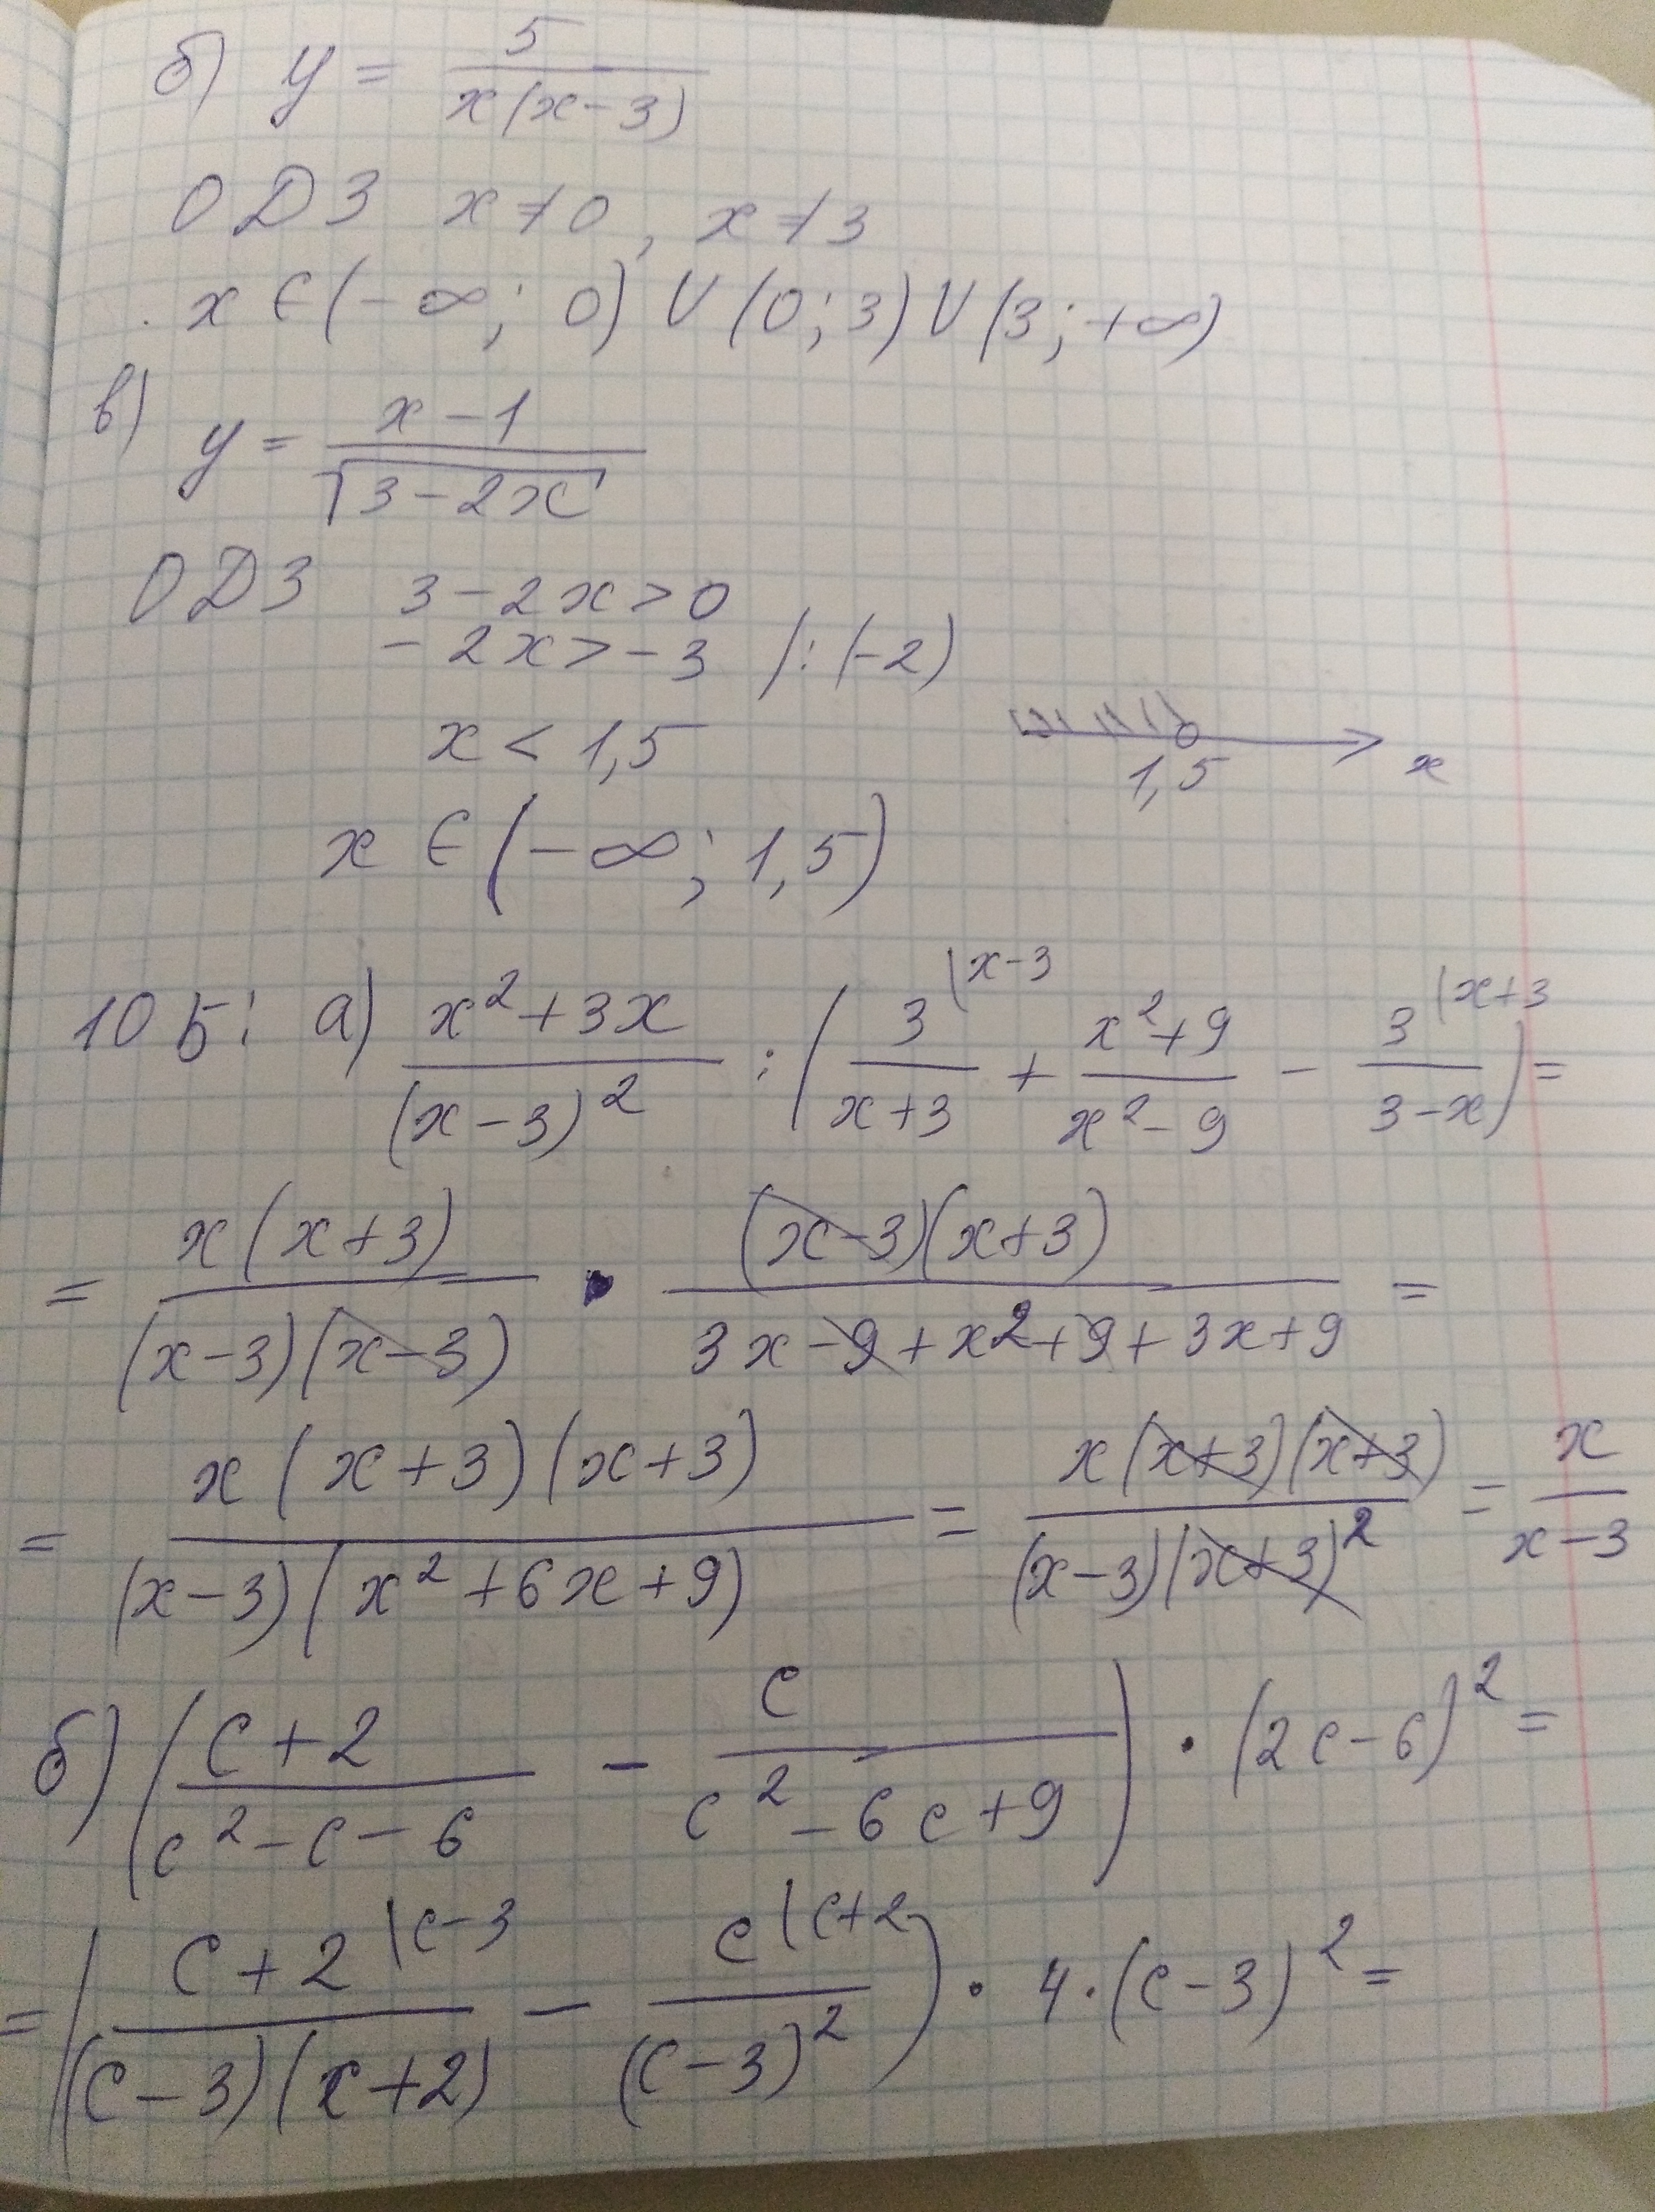 б) y = 5/(x(x-3))
ОДЗ x≠0, x≠3
x ∈ (-∞; 0) ∪ (0; 3) ∪ (3; +∞)
в) y = (x-1)/√(3-2x)
ОДЗ 3-2x>0
-2x>-3 /:(-2)
x < 1,5
1,5 x
x ∈ (-∞; 1,5)
10 Б: а) (x²+3x)/(x-3)² : (3/(x+3) \x-3 + (x²+9)/(x²-9) - 3/(3-x) \x+3) =
= x(x+3)/((x-3)(x-3)) · (x-3)(x+3)/(3x-9+x²+9+3x+9) =
= x(x+3)(x+3)/((x-3)(x²+6x+9)) = x(x+3)(x+3)/((x-3)(x+3)²) = x/(x-3)
б) ((c+2)/(c²-c-6) - c/(c²-6c+9)) · (2c-6)² =
= ((c+2)/((c-3)(c+2)) \c-3 - c/(c-3)² \c+2) · 4·(c-3)² =